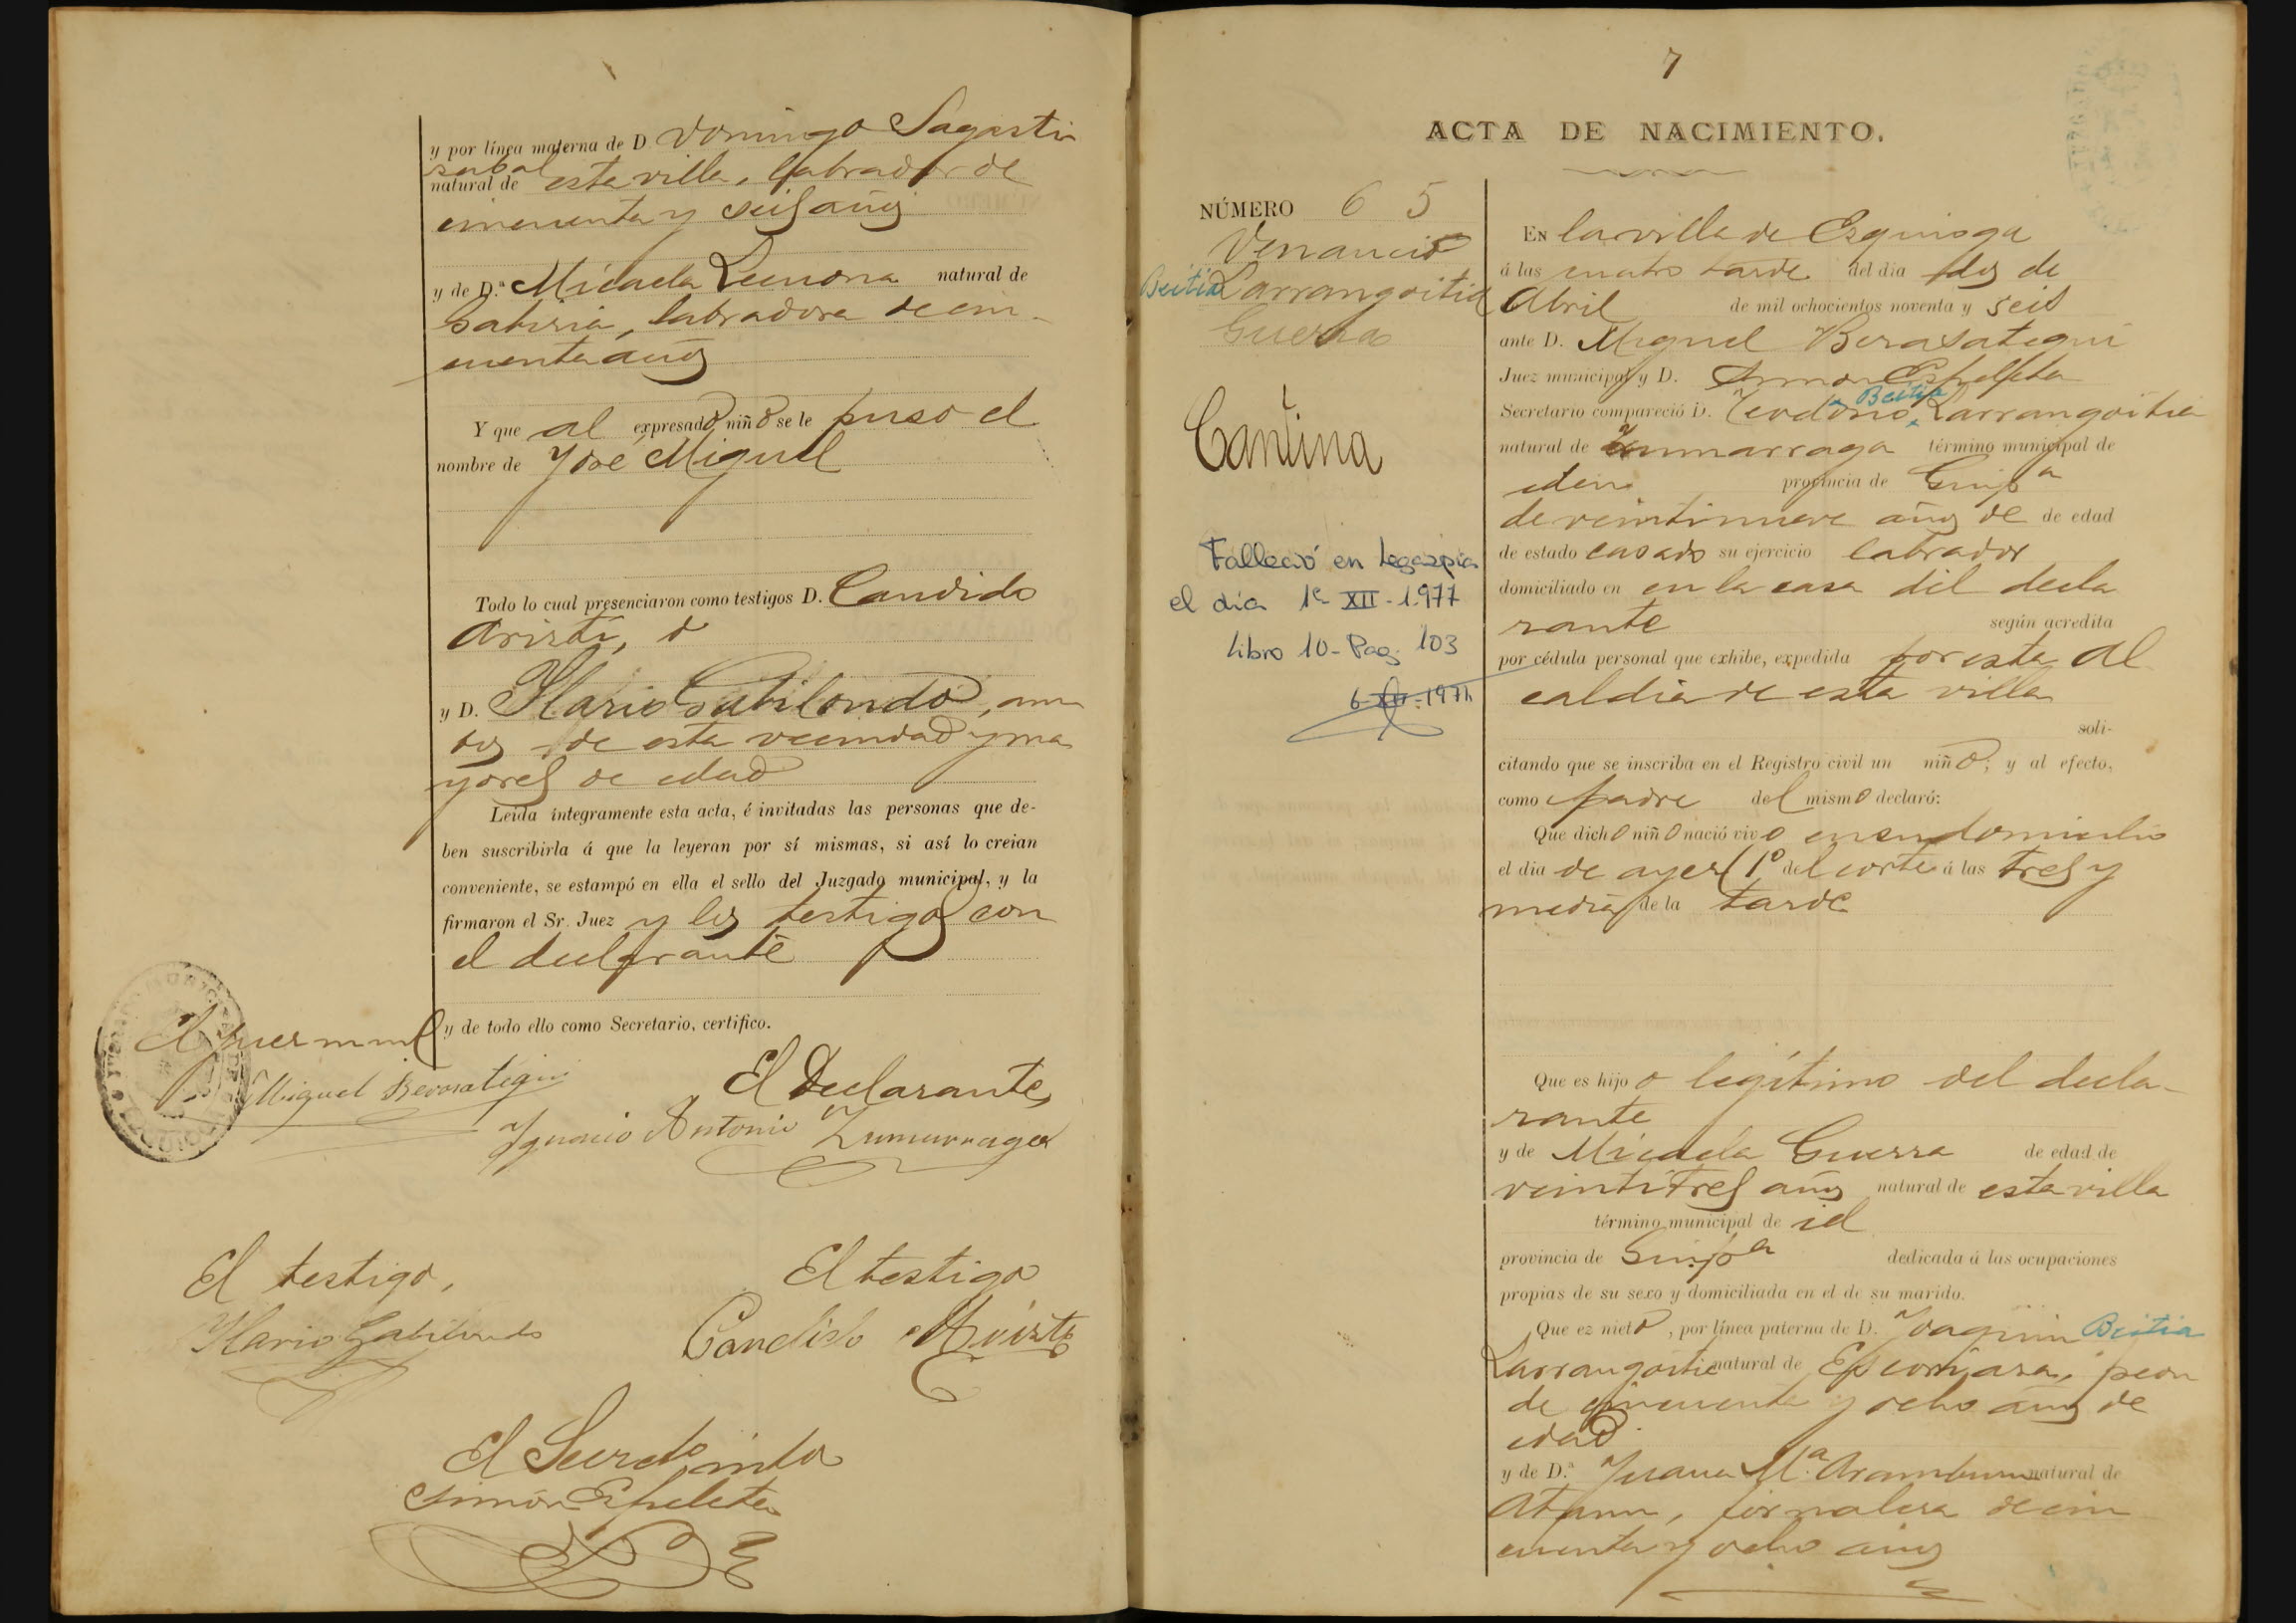 y por línea materna de D Domingo Sagasti
zabal
natural de esta villa, labrador de
cincuenta y seis años
y de D.ª Micaela Lecuona natural de
labradora de cin-
cuenta años
Y que al expresado niño se le puso el
nombre de José Miguel
Todo lo cual presenciaron como testigos D. Candido
Aristi,
y D. Ylario Gabilondo, am
bos de esta vecindad y ma
yores de edad
Leída íntegramente esta acta, é invitadas las personas que de-
ben suscribirla á que la leyeran por sí mismas, si así lo creian
conveniente, se estampó en ella el sello del Juzgado municipal, y la
firmaron el Sr. Juez y los testigos con
el declarante
y de todo ello como Secretario, certifico.
El Juez munl
Miguel Berasategui
El Declarante,
Ygnacio Antonio Zumarraga
El testigo,
Ylario Gabilondo
El testigo
Candido Aristi
El Secreto
Simón Espeleta
7
ACTA DE NACIMIENTO.
NÚMERO 6 5
Venancio
Beitia Larrangoitia
Guerra
Cantina
Falleció en Legazpia
el dia 1º XII-1.977
Libro 10-Pag. 103
6-XII-1977
En la villa de Ezquioga
á las cuatro tarde del día dos de
Abril de mil ochocientos noventa y seis
ante D. Miguel Berasategui
Juez municipal y D. Simon Espeleta
Secretario compareció D. Teodorio Beitia Larrangoitia
natural de Zumarraga término municipal de
idem provincia de Guipa
de veintinueve años de de edad
de estado casado su ejercicio labrador
domiciliado en en la casa del decla
rante según acredita
por cédula personal que exhibe, expedida por esta Al
caldia de esta villa
soli-
citando que se inscriba en el Registro civil un niño; y al efecto,
como padre del mismo declaró:
Que dicho niño nació vivo en su domicilio
el día de ayer 1º del corte á las tres y
media de la tarde
Que es hijo o legítimo del decla-
rante
y de Micaela Guerra de edad de
veintitres años natural de esta villa
término municipal de id
provincia de Guipa dedicada á las ocupaciones
propias de su sexo y domiciliada en el de su marido.
Que ez nieto, por línea paterna de D. Joaquin Beitia
Larrangoitia natural de Escoriaza, peon
de cincuenta y ocho años de
edad
y de D.ª Juana M.ª Aramburu natural de
Ataun, jornalera de cin
cuenta y ocho años